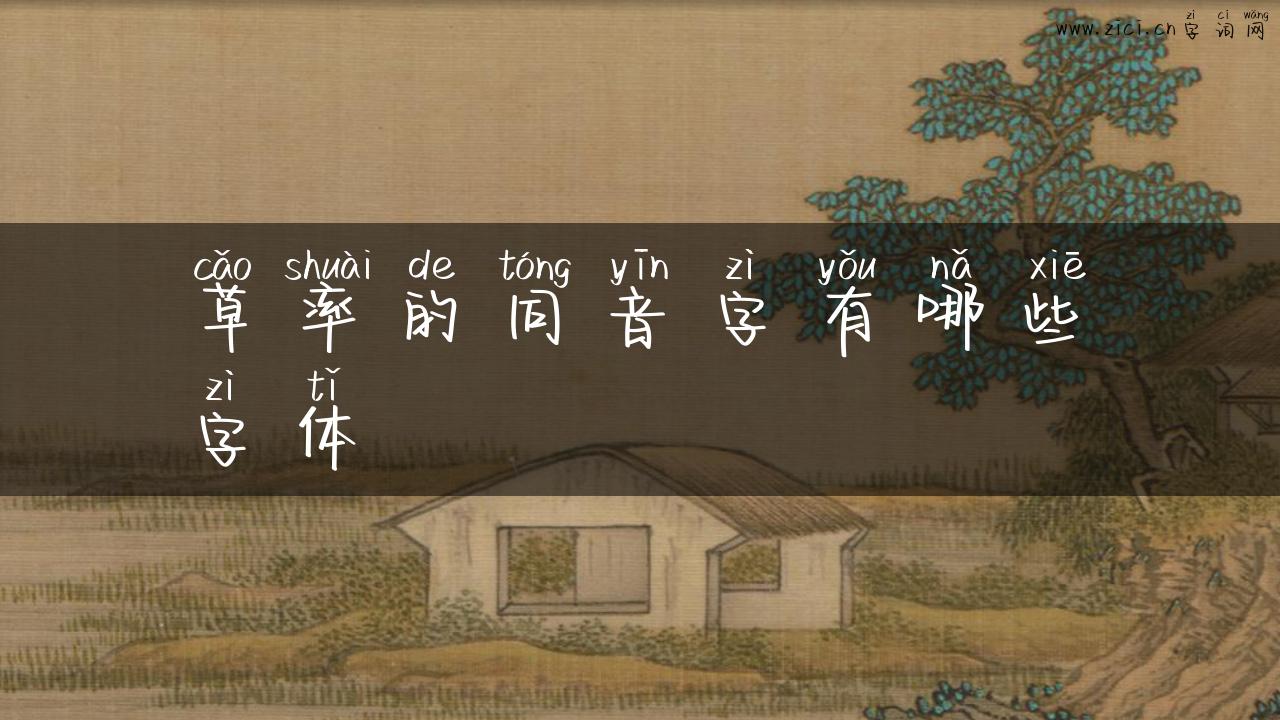 zì cí wǎng
www.zici.cn 字词网
cǎo shuài de tóng yīn zì yǒu nǎ xiē
草率的同音字有哪些
zì tǐ
字体